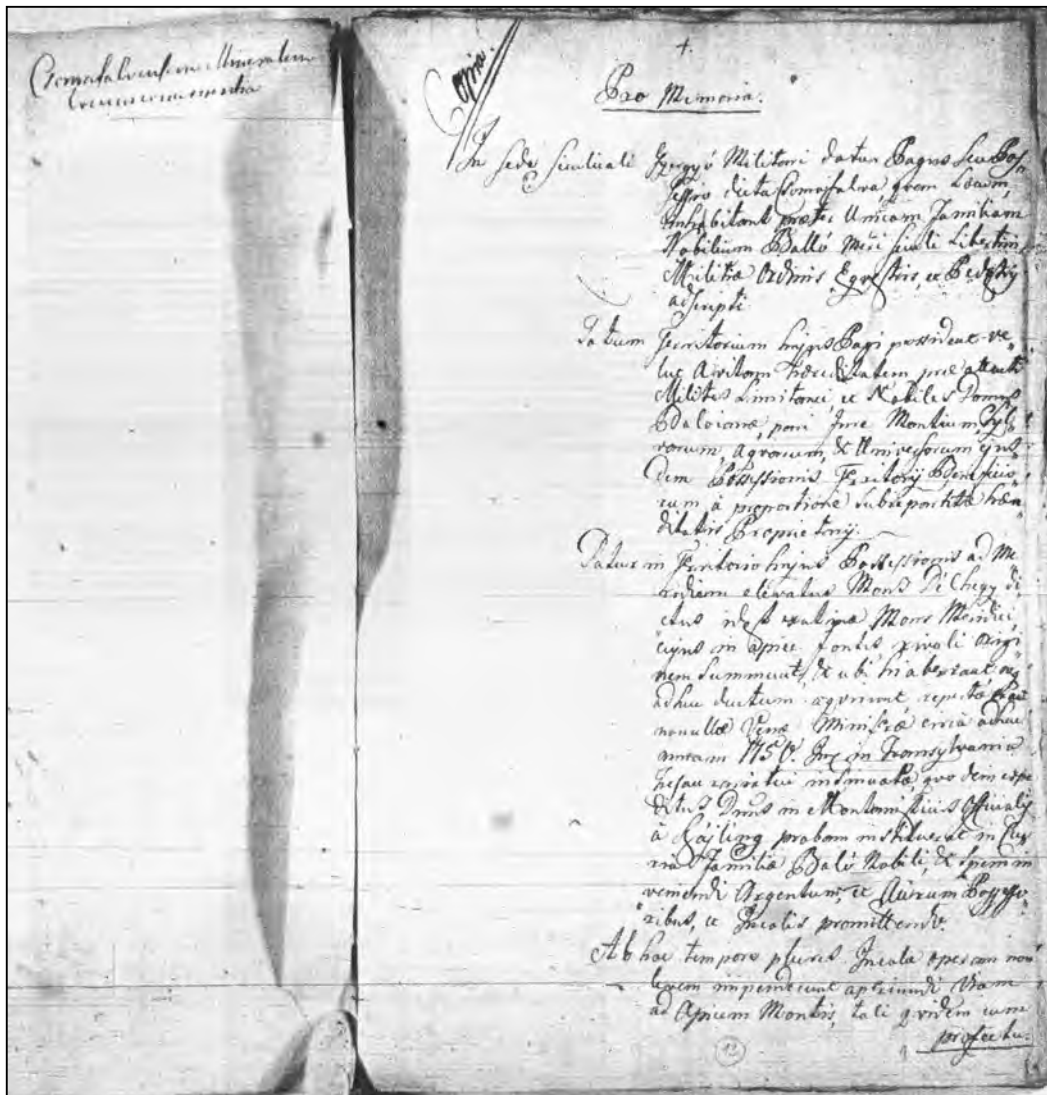 Csomafalvensem Mineralem
concernentia
Copia.
+.
Pro Memoria.
In Sede Siculicali Gyergyó Militari datur Pagus seu Pos-
sessio dicta Csomafalva, quem Locum,
inhabitant praeter Unicam Familiam
Nobilium Balló meri Siculi Libertini
Militiae Ordinis Equestris, et Pedestris
adscripti.
Totum Territorium hujus Pagi possident ve-
lut Avitam haereditatem prae attacti
Milites Limitanei et Nobiles Domus
Baloianae, pari Jure Montium, Syl-
varum, agrorum, & Universorum ejus
dem Possessionis Territorij Beneficio-
rum, a proportione subrepartitae haere-
ditatis Proprietarij.
Datur in Teritorio hujus Possessionis ad Me-
ridiem elevatus Mons Dél hegy di-
ctus idest Mons Meridiei,
cujus in apice fontes rivuli origi-
nem summunt, & ubi hi aberrant
adhuc ductum repertae
nonullae Venae Minerae circa
annum 1750. in Transylvania
Thesaurariatui insinuatae, quo dein expe-
ditus Dnus in Montanisticis Officialis
à Hajling probam instituerat in Cu-
ria Familiae Baló Nobili, & spem in
veniendi Argentum, et Aurum Possesso-
ribus, et Incolis promittendo.
Ab hoc tempore plures Incolae operam non
levem impenderunt aperiundi Viam
ad Apicem Montis, tali quidem cum
profectu.
12